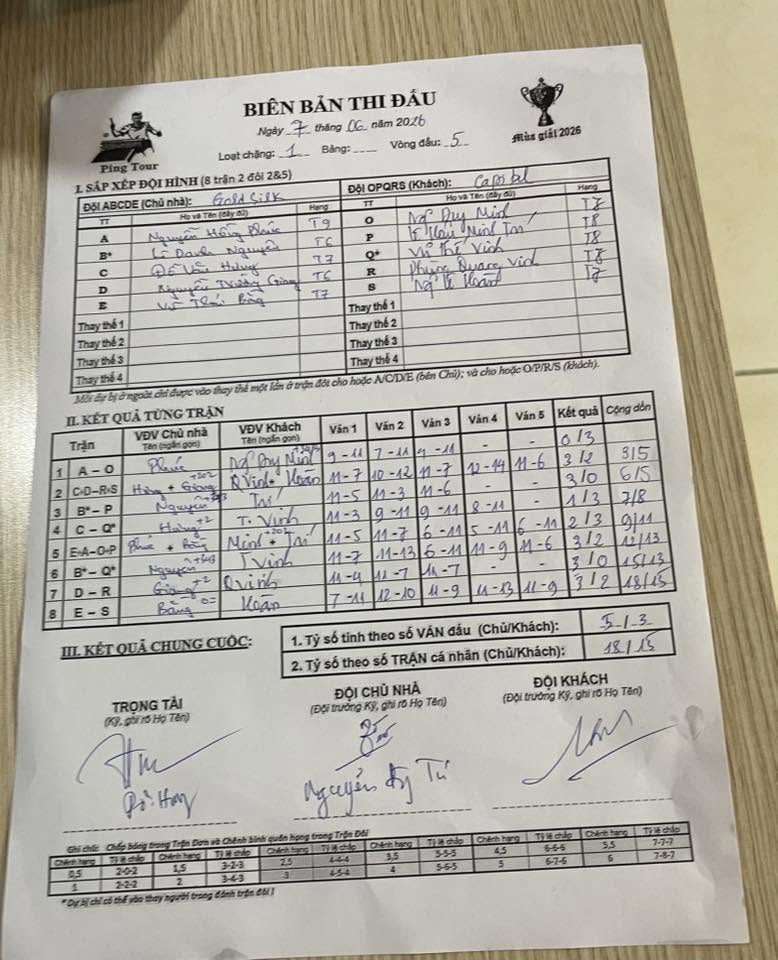 BIÊN BẢN THI ĐẤU
Ngày 7 tháng 06 năm 2026
Ping Tour
Loạt chặng: 1 Bảng: Vòng đấu: 5
Mùa giải 2026
I. SẮP XẾP ĐỘI HÌNH (8 trận 2 đôi 2&5)
Đội ABCDE (Chủ nhà): Gold Silk Đội OPQRS (Khách): Capital
TT Họ và Tên (đầy đủ) Hạng TT Họ và Tên (đầy đủ) Hạng
A Nguyễn Hồng Phúc T9 O Ngô Duy Minh T7
B* Lê Danh Nguyên T6 P Minh Trí T8
C Đỗ Văn Hưng T7 Q* Vũ Thế Vinh T8
D Nguyễn Trường Giang T6 R Phùng Quang Vinh T8
E Vũ Thái Bằng T7 S Ngô Lê Hoàn T7
Thay thế 1 Thay thế 1
Thay thế 2 Thay thế 2
Thay thế 3 Thay thế 3
Thay thế 4 Thay thế 4
Mỗi dự bị ở ngoài chỉ được vào thay thế một lần ở trận đôi cho hoặc A/C/D/E (bên Chủ); và cho hoặc O/P/R/S (khách).
II. KẾT QUẢ TỪNG TRẬN
Trận VĐV Chủ nhà Tên (ngắn gọn) VĐV Khách Tên (ngắn gọn) Ván 1 Ván 2 Ván 3 Ván 4 Ván 5 Kết quả Cộng dồn
1 A – O Phúc Ngô Duy Minh 9 - 11 7 - 11 9 - 11 - - 0/3
2 C+D–R+S Hưng + Giang +202 Q Vinh + Hoàn 11-7 10-12 11-7 12-14 11-6 3/2 3/5
3 B* – P Nguyên Trí 11-5 11-3 11-6 - - 3/0 6/5
4 C – Q* Hưng +2 T. Vinh 11-3 9-11 9-11 8-11 - 1/3 7/8
5 E+A–O+P Phúc + Bằng Minh + Trí +202 11-5 11-7 6-11 5-11 6-11 2/3 9/11
6 B* – Q* Nguyên T Vinh 11-7 11-13 6-11 11-9 11-6 3/2 12/13
7 D – R Giang +2 Q Vinh 11-4 11-7 11-7 - - 3/0 15/13
8 E – S Bằng 0= Hoàn 7-11 12-10 11-9 11-13 11-9 3/2 18/15
III. KẾT QUẢ CHUNG CUỘC:
1. Tỷ số tính theo số VÁN đấu (Chủ/Khách): 5/3
2. Tỷ số theo số TRẬN cá nhân (Chủ/Khách): 18/15
TRỌNG TÀI ĐỘI CHỦ NHÀ ĐỘI KHÁCH
(Ký, ghi rõ Họ Tên) (Đội trưởng Ký, ghi rõ Họ Tên) (Đội trưởng Ký, ghi rõ Họ Tên)
Ghi chú: Chấp bóng trong Trận Đơn và Chênh bình quân hạng trong Trận Đôi
Chênh hạng Tỷ lệ chấp Chênh hạng Tỷ lệ chấp Chênh hạng Tỷ lệ chấp Chênh hạng Tỷ lệ chấp Chênh hạng Tỷ lệ chấp Chênh hạng Tỷ lệ chấp
0,5 2-0-2 1,5 3-2-3 2,5 4-4-4 3,5 5-5-5 4,5 6-6-6 5,5 7-7-7
1 2-2-2 2 3-4-3 3 4-5-4 4 5-6-5 5 6-7-6 6 7-8-7
* Dự bị chỉ có thể vào thay người trong đánh trận đôi !